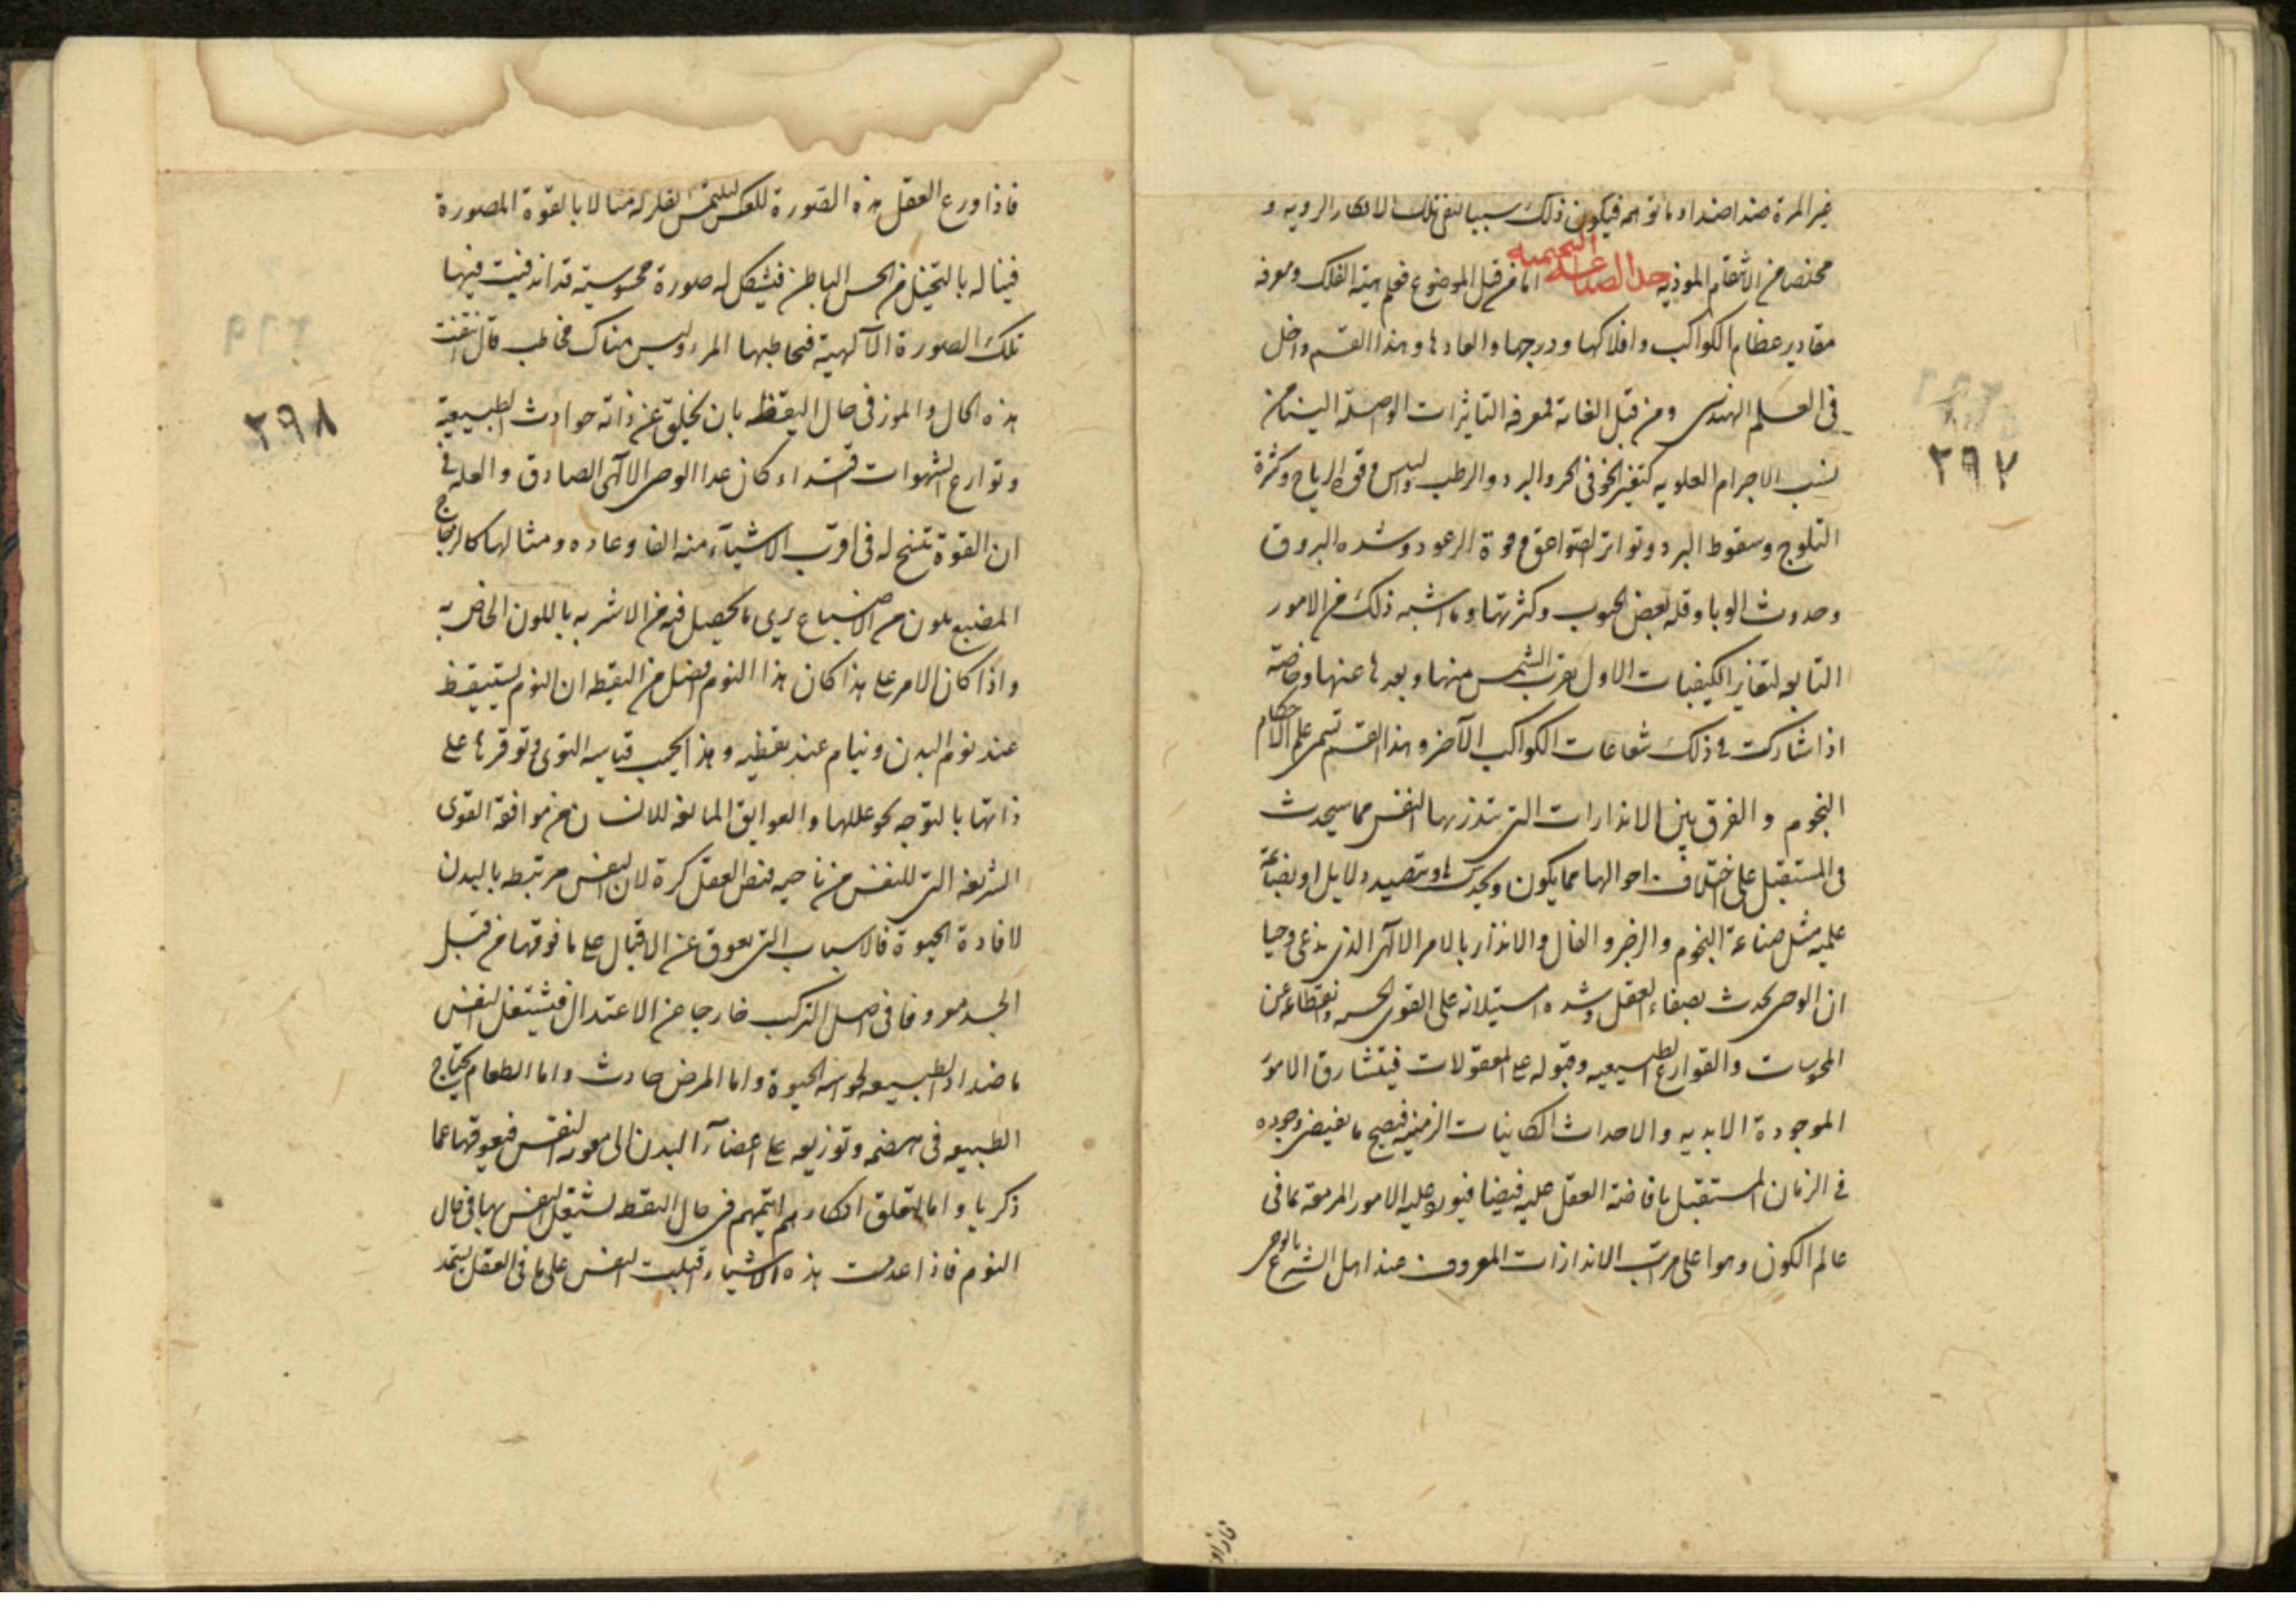 غير المرة ضدا ضدا وما توهمه فيكون ذلك سببا لنفى تلك الافكار الرديه و
مخلصا من الاسقام الموذيه حد الصناعة النجيميه اما من قبل الموضوع فعلم هيئة الفلك ومعرفة
مقادير عظام الكواكب وافلاكها ودرجها وابعادها وهذا القسم داخل
فى العلم الهندسى ومن قبل الغاية لمعرفه التاثيرات الواصلة الينا من
نسب الاجرام العلويه كتغير الجو فى الحر والبرد والرطب واليبس وقوة الرياح وكثرة
الثلوج وسقوط البرد وتواتر الصواعق وقوة الرعود وشده البروق
وحدوث الوبا وقله بعض الحبوب وكثرتها وما اشبه ذلك من الامور
التابعه لتغاير الكيفيات الاول بقرب الشمس منها وبعدها عنها وخاصة
اذا شاركت فى ذلك شعاعات الكواكب الآخر وهذا القسم تسمى علم الاحكام
النجوم والفرق بين الانذارات التى تنذر بها النفس مما سيحدث
فى المستقبل على اختلاف احوالها مما يكون ويحدث وتصيد دلايل او بصناعة
علميه مثل صناعة النجوم والزجر والفال والانذار بالامر الآلهى الذى يدعى وحيا
ان الوحى يحدث بصفاء العقل وشده استيلائه على القوى الحسيه وانقطاعه عن
المحسوسات والقوارع الطبيعيه وقبوله على المعقولات فيتشارق الامور
الموجودة الابديه والاحداث الكاينات الزمنيه فيصبح ما يفيض وجوده
فى الزمان المستقبل بافاضة العقل عليه فيضا فيورد عليه الامور المزمعة بما فى
عالم الكون وهو اعلى مراتب الانذارات المعروف عند اهل الشرع بالوحى
٢٩٧
فاذا
فاذا ورع العقل هذه الصورة للنفس ليلتمس لها مثالا بالقوة المصورة
فيناله بالتخيل من الحس الباطن فيشكل له صورة محسوسية قد اندفنت فيها
تلك الصورة الآلهية فتخاطبها المرء وليس هناك مخاطب قال اتفقت
هذه الحال والموز فى حال اليقظه بان يخلق عن ذاته حوادث الطبيعية
وتوارع الشهوات قسداء كان عدا الوحى الالهى الصادق والعله فى
ان القوة تسنح له فى اقرب الاشياء منه الفا وعاده ومثالها كالزجاج
المصبغ بلون من الاصباغ يرى ما يحصل فيه من الاشربه باللون الخاص به
واذا كان الامر على هذا كان هذا النوم افضل من اليقظه ان النوم يستيقظ
عند نوم البدن وينام عند يقظته وهذا يجب قياسه القوى وتوفرها على
ذاتها بالتوجه نحو عللها والعوايق المانعه للانسان من موافقة القوى
الشريفه التى للنفس من ناحيه فيض العقل كرة لان النفس مرتبطه بالبدن
لافادة الحيوة فالاسباب التى تعوق عن الاقبال على ما فوقها من قبل
الجسد معروفا فى اصل التركيب خارجا عن الاعتدال فيشتغل النفس
باضداد الطبيعه لحراسة الحيوة واما المرض حادث واما الطعام يحتاج
الطبيعه فى هضمه وتوزيعه على اعضآء البدن الى معونة النفس فيعوقها عما
ذكرنا واما لتعلق افكارهم ايتهم فى حال اليقظه لشتغل النفس بها فى حال
النوم فاذا عدمت هذه الاشياء اقبلت النفس على ما فى العقل ليتحد
٢٩٨